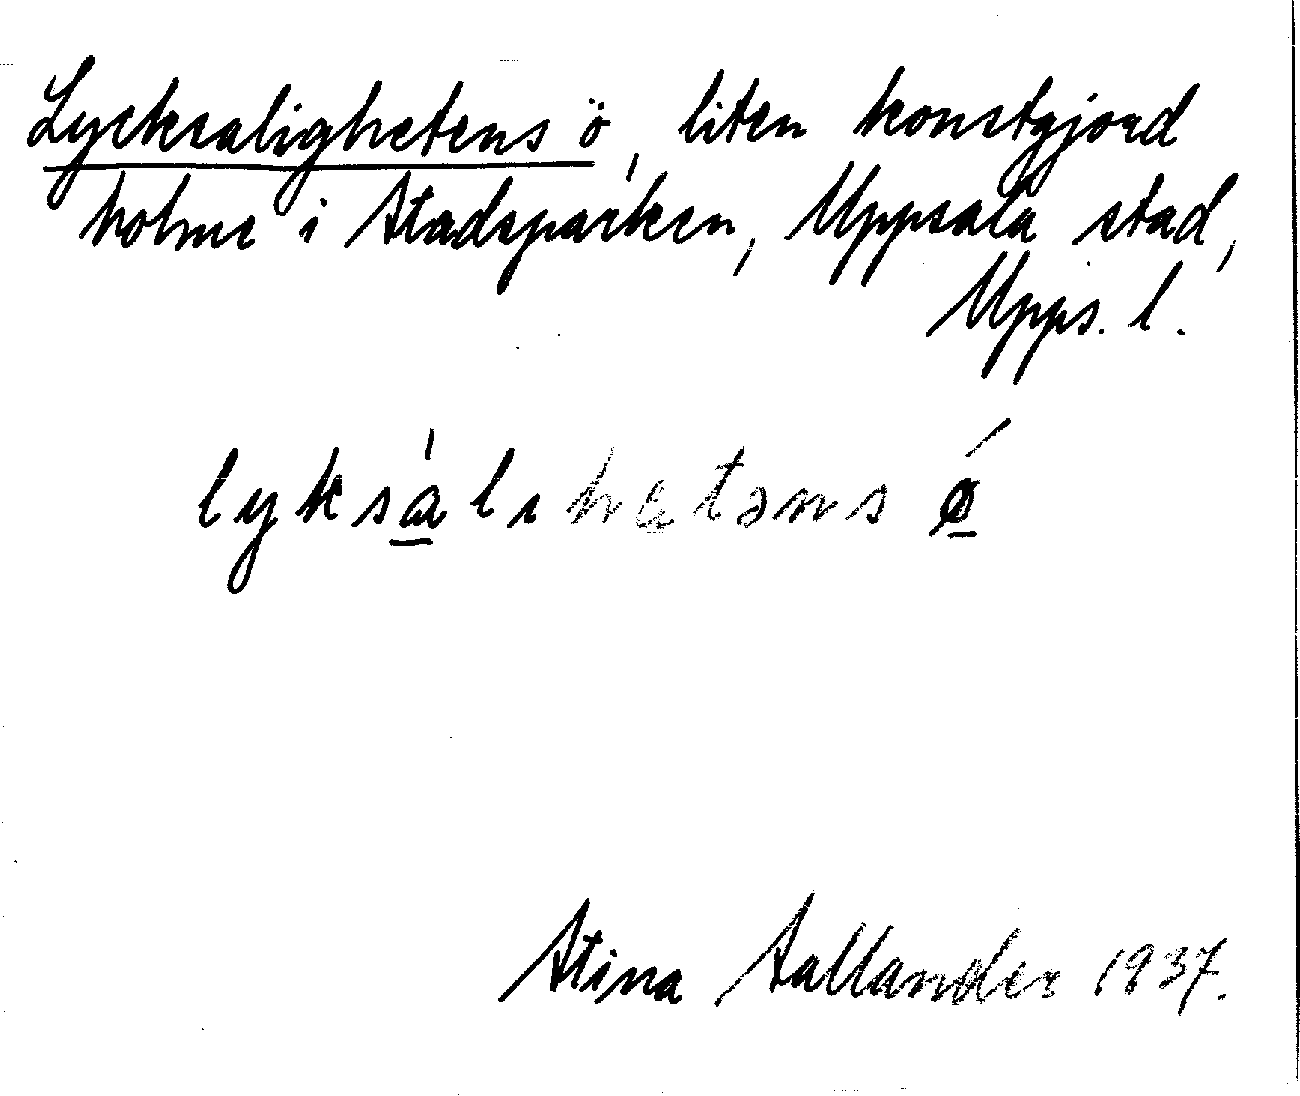 Lycksalighetens ö, liten konstgjord
holme i Stadsparken, Uppsala stad,
Upps. l.
lyksàlıhetəns ǿ
Stina Sallander 1937.